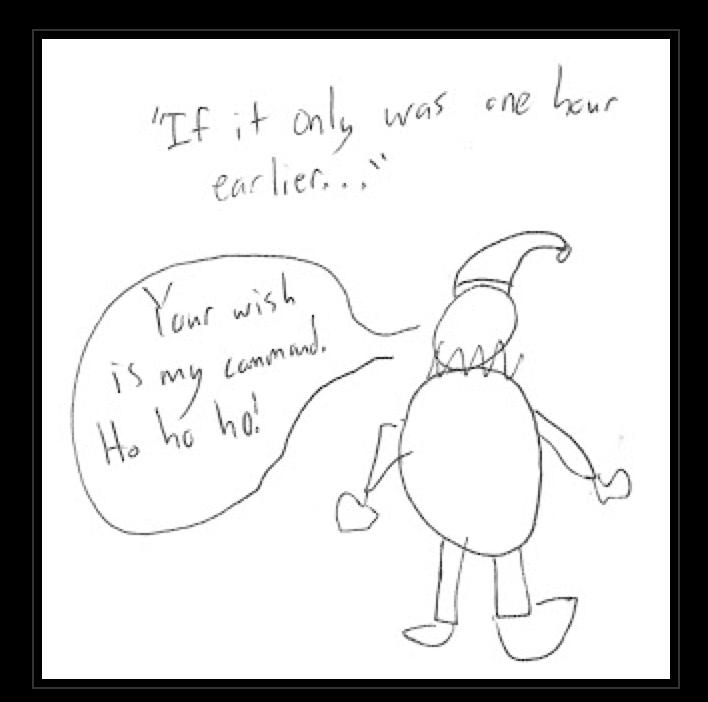 "If it only was one hour
earlier..."
Your wish
is my command.
Ho ho ho!